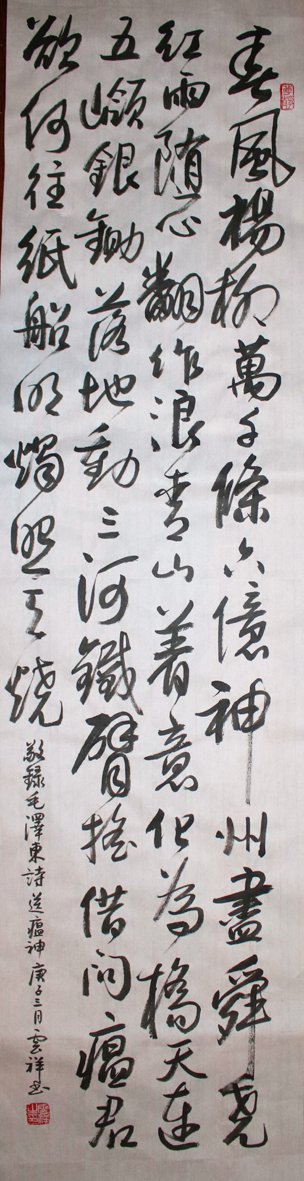 春風楊柳萬千條六億神州盡舜堯
红雨随心翻作浪青山着意化為橋天連
五嶺銀鋤落地動三河鐵臂搖借问瘟君
欲何往紙船明燭照天燒
敬録毛澤東詩送瘟神庚子三月雲祥书